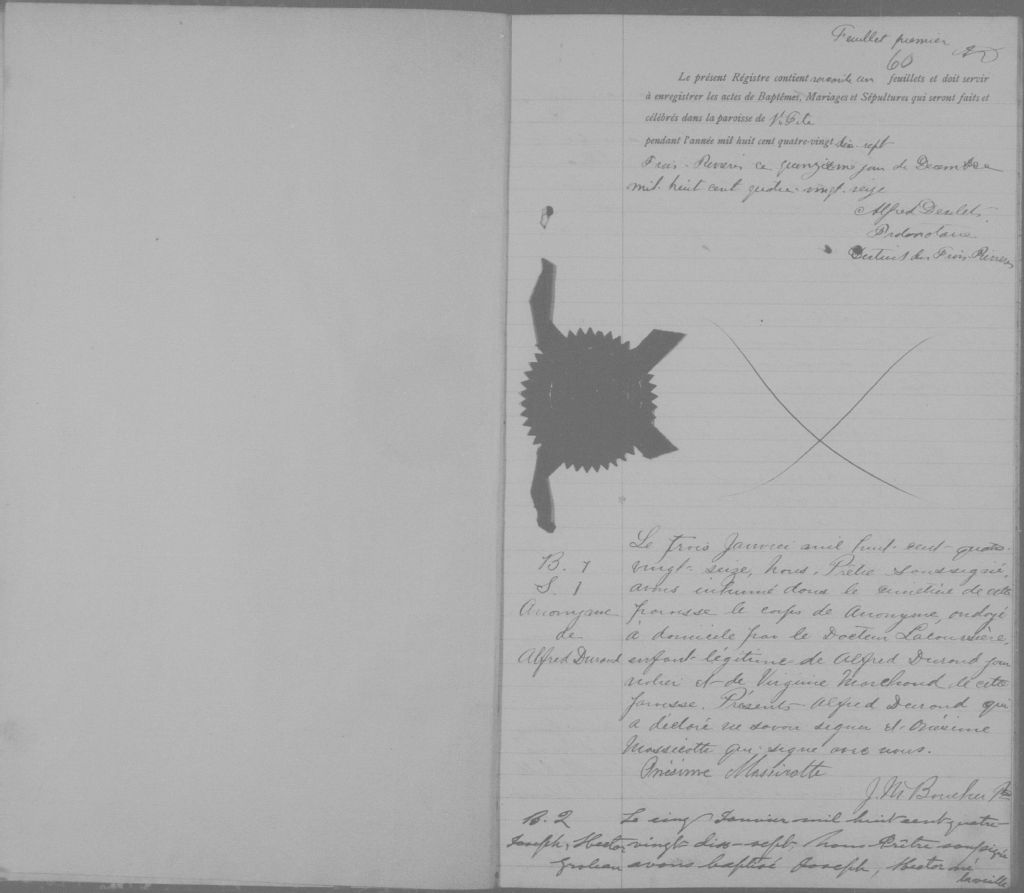 Feuillet premier
60
Le présent Régistre contient soixante un feuillets et doit servir
à enregistrer les actes de Baptêmes, Mariages et Sépultures qui seront faits et
célébrés dans la paroisse de St. Tite
pendant l'année mil huit cent quatre-vingt dix-sept
Trois-Rivières ce quinzième jour de Décembre
mil huit cent quatre-vingt-seize
Alfred Desilets
Protonotaire
District des Trois Rivières
Le trois Janvier mil huit-cent-quatre-
B. 1
vingt-seize, Nous, Prêtre soussigné,
S. 1
avons inhumé dans le cimetière de cette
Anonyme
paroisse le corps de Anonyme, ondoyé
de
à domicile par le Docteur Lacoursière,
Alfred Durand
enfant légitime de Alfred Durand jour
nalier et de Virginie Marchand de cette
paroisse. Présents Alfred Durand qui
a déclaré ne savoir signer et Onésime
Massicotte qui signe avec nous.
Onésime Massicotte
J. M Boucher Ptre
B. 2
Le cinq Janvier mil huit cent quatre-
Joseph, Hector
vingt dix-sept Nous Prêtre soussigné
avons baptisé Joseph, Hector né
la veille